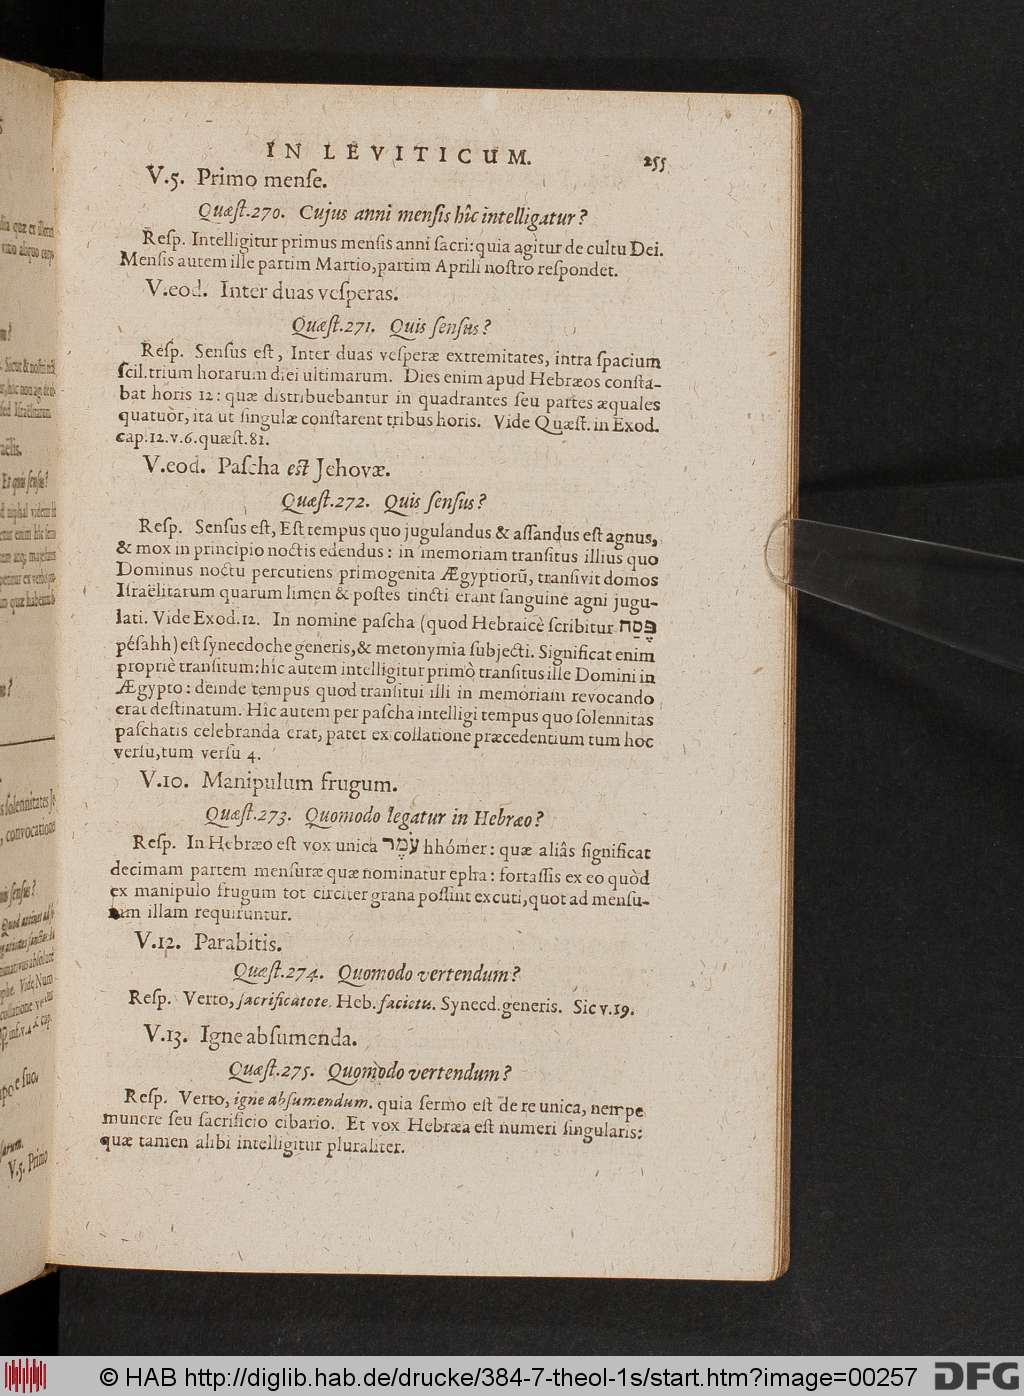 IN LEVITICUM. 255
V.5. Primo mense.
Quæst.270. Cujus anni mensis hîc intelligatur?
Resp. Intelligitur primus mensis anni sacri: quia agitur de cultu Dei.
Mensis autem ille partim Martio, partim Aprili nostro respondet.
V.eod. Inter duas vesperas.
Quæst.271. Quis sensus?
Resp. Sensus est, Inter duas vesperæ extremitates, intra spacium
scil. trium horarum diei ultimarum. Dies enim apud Hebræos consta-
bat horis 12: quæ distribuebantur in quadrantes seu partes æquales
quatuòr, ita ut singulæ constarent tribus horis. Vide Quæst. in Exod.
cap.12.v.6.quæst.81.
V.eod. Pascha est Jehovæ.
Quæst.272. Quis sensus?
Resp. Sensus est, Est tempus quo jugulandus & assandus est agnus,
& mox in principio noctis edendus: in memoriam transitus illius quo
Dominus noctu percutiens primogenita Ægyptiorũ, transivit domos
Israëlitarum quarum limen & postes tincti erant sanguine agni jugu-
lati. Vide Exod.12. In nomine pascha (quod Hebraicè scribitur פֶּסַח
pésahh) est synecdoche generis, & metonymia subjecti. Significat enim
propriè transitum: hîc autem intelligitur primò transitus ille Domini in
Ægypto: deinde tempus quod transitui illi in memoriam revocando
erat destinatum. Hîc autem per pascha intelligi tempus quo solennitas
paschatis celebranda erat, patet ex collatione præcedentium tum hoc
versu, tum versu 4.
V.10. Manipulum frugum.
Quæst.273. Quomodo legatur in Hebræo?
Resp. In Hebræo est vox unica עֹמֶר hhómer: quæ aliâs significat
decimam partem mensuræ quæ nominatur epha: fortassis ex eo quòd
ex manipulo frugum tot circiter grana possint excuti, quot ad mensu-
ram illam requiruntur.
V.12. Parabitis.
Quæst.274. Quomodo vertendum?
Resp. Verto, sacrificatote. Heb. facietis. Synecd. generis. Sic v.19.
V.13. Igne absumenda.
Quæst.275. Quomodo vertendum?
Resp. Verto, igne absumendum. quia sermo est de re unica, nempe
munere seu sacrificio cibario. Et vox Hebræa est numeri singularis:
quæ tamen alibi intelligitur pluraliter.
© HAB http://diglib.hab.de/drucke/384-7-theol-1s/start.htm?image=00257 DFG